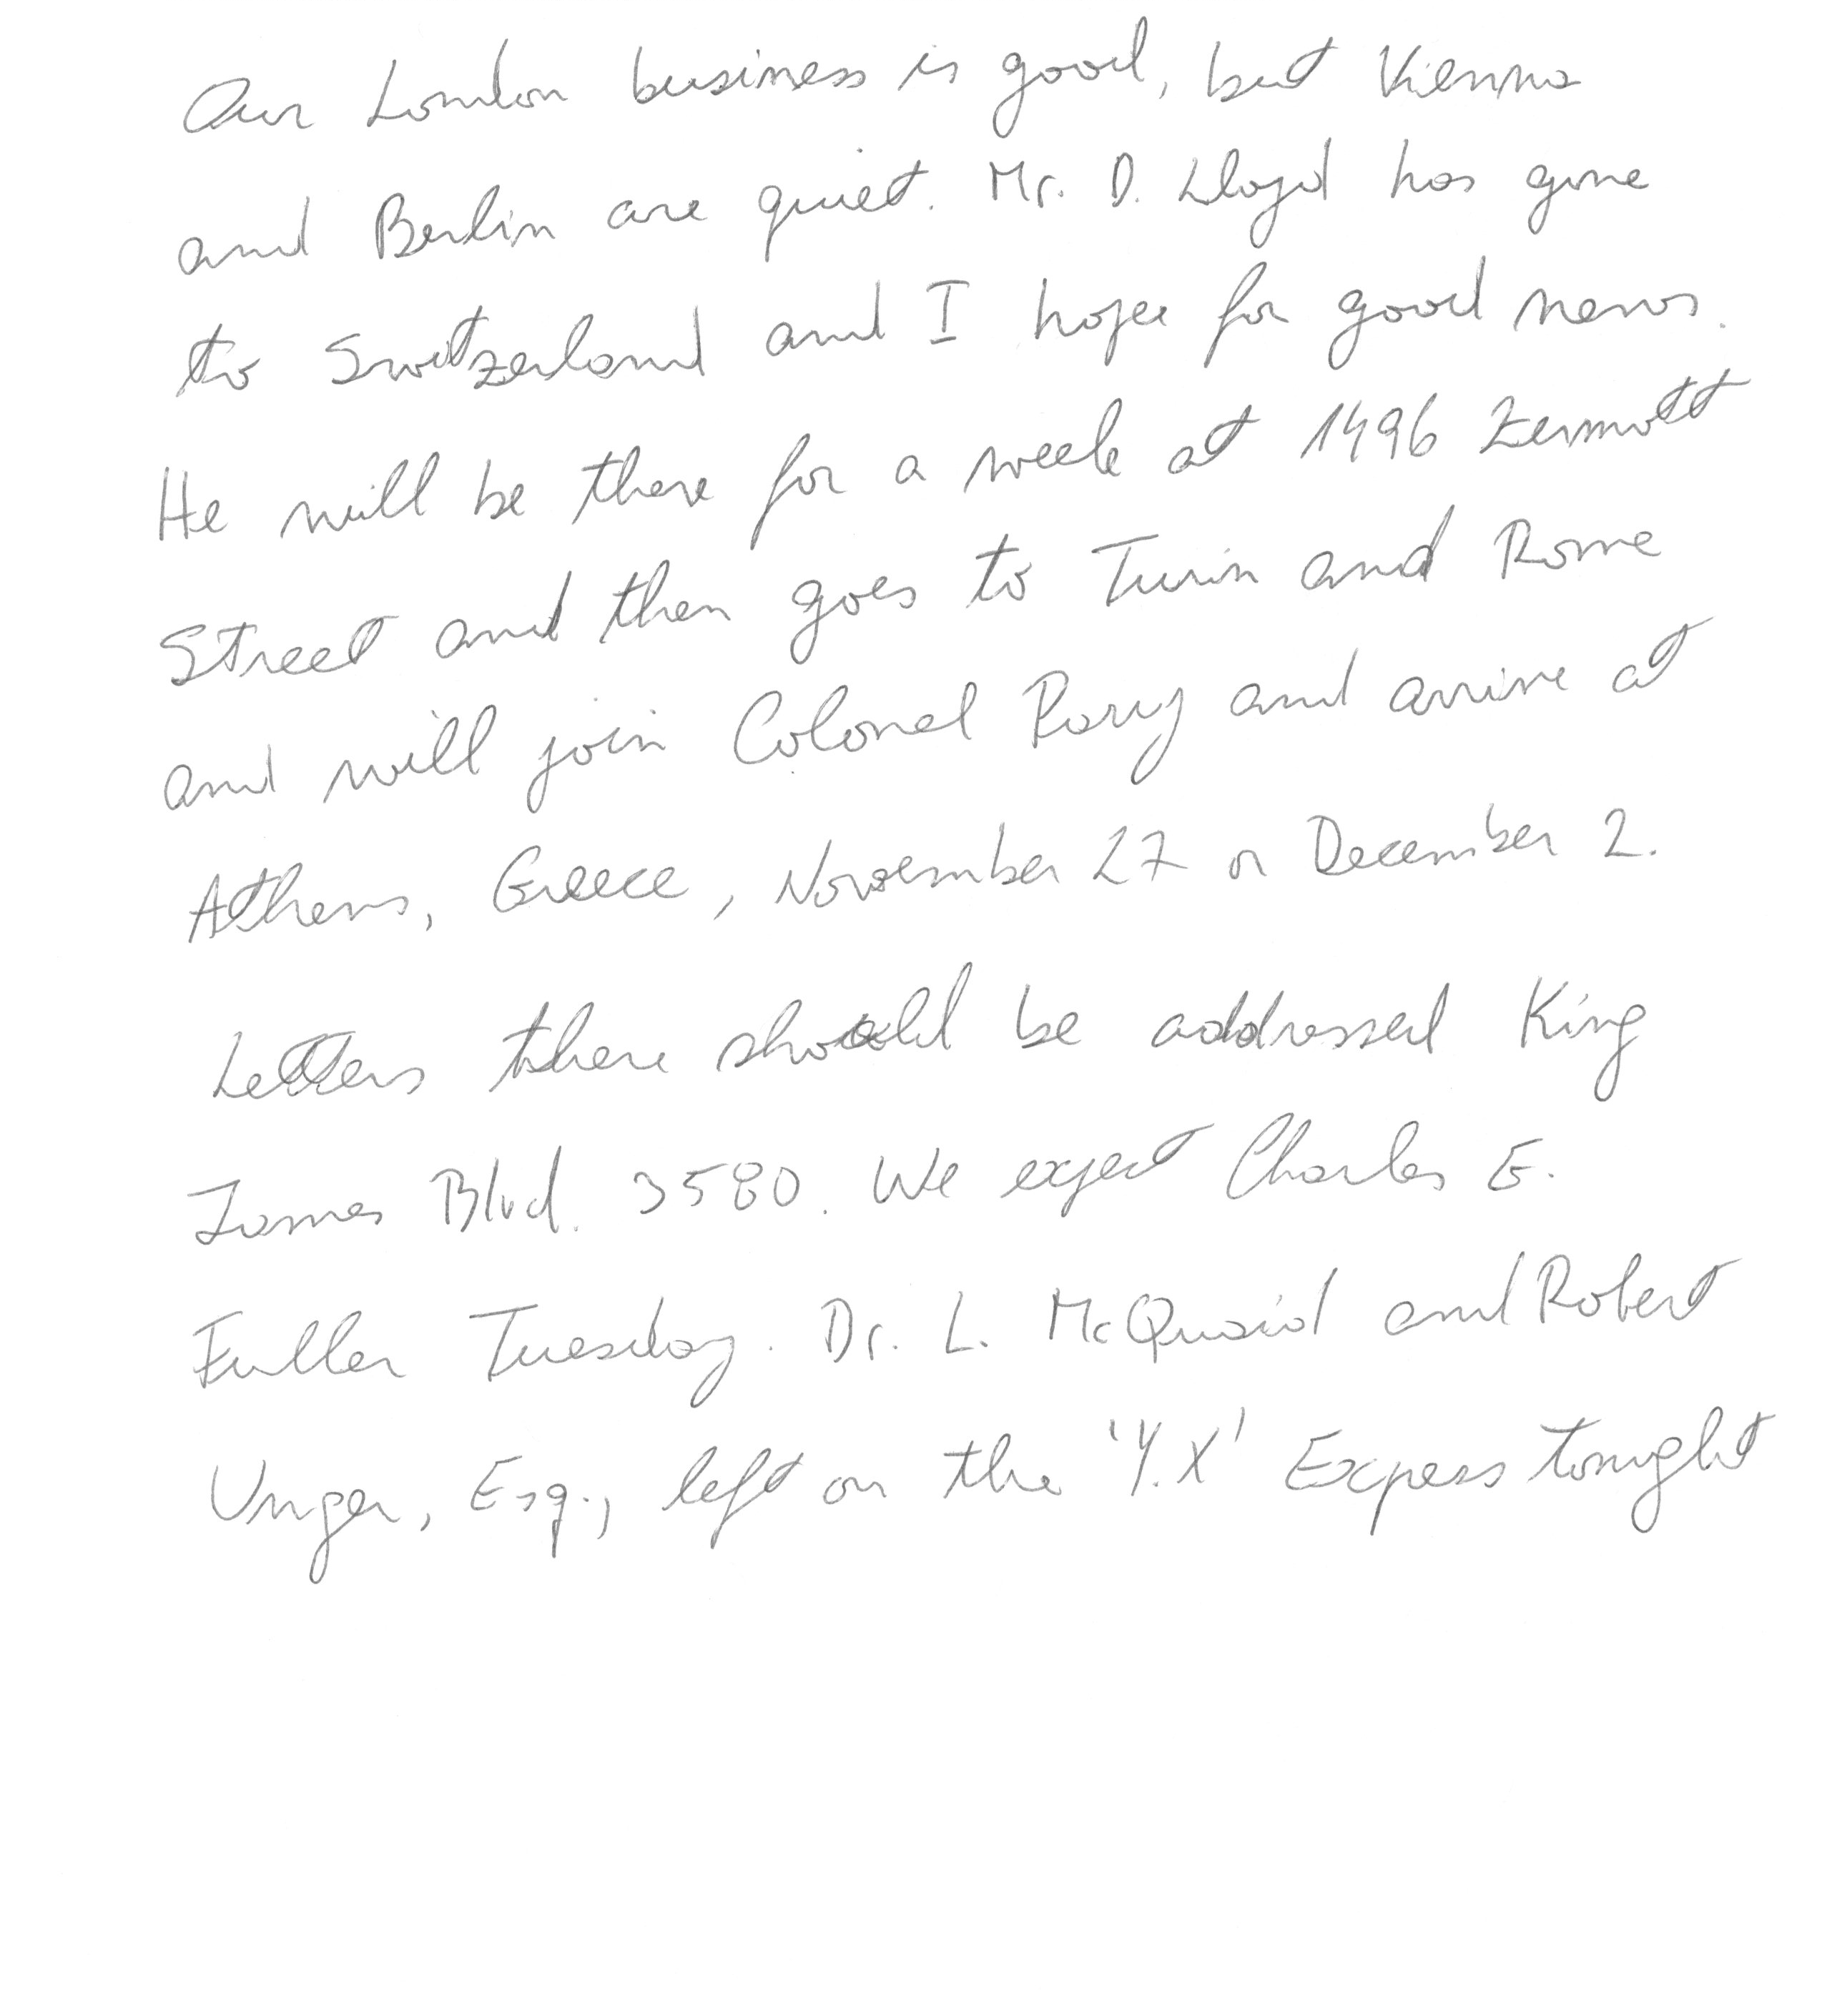 Our London business is good, but Vienna
and Berlin are quiet. Mr. D. Lloyd has gone
to Switzerland and I hope for good news.
He will be there for a week at 1496 Zermott
Street and then goes to Turin and Rome
and will join Colonel Parry and arrive at
Athens, Greece, November 27 or December 2.
Letters there should be addressed King
James Blvd. 3580. We expect Charles E.
Fuller Tuesday. Dr. L. McQuaid and Robert
Unger, Esq., left on the 'Y.X' Express tonight